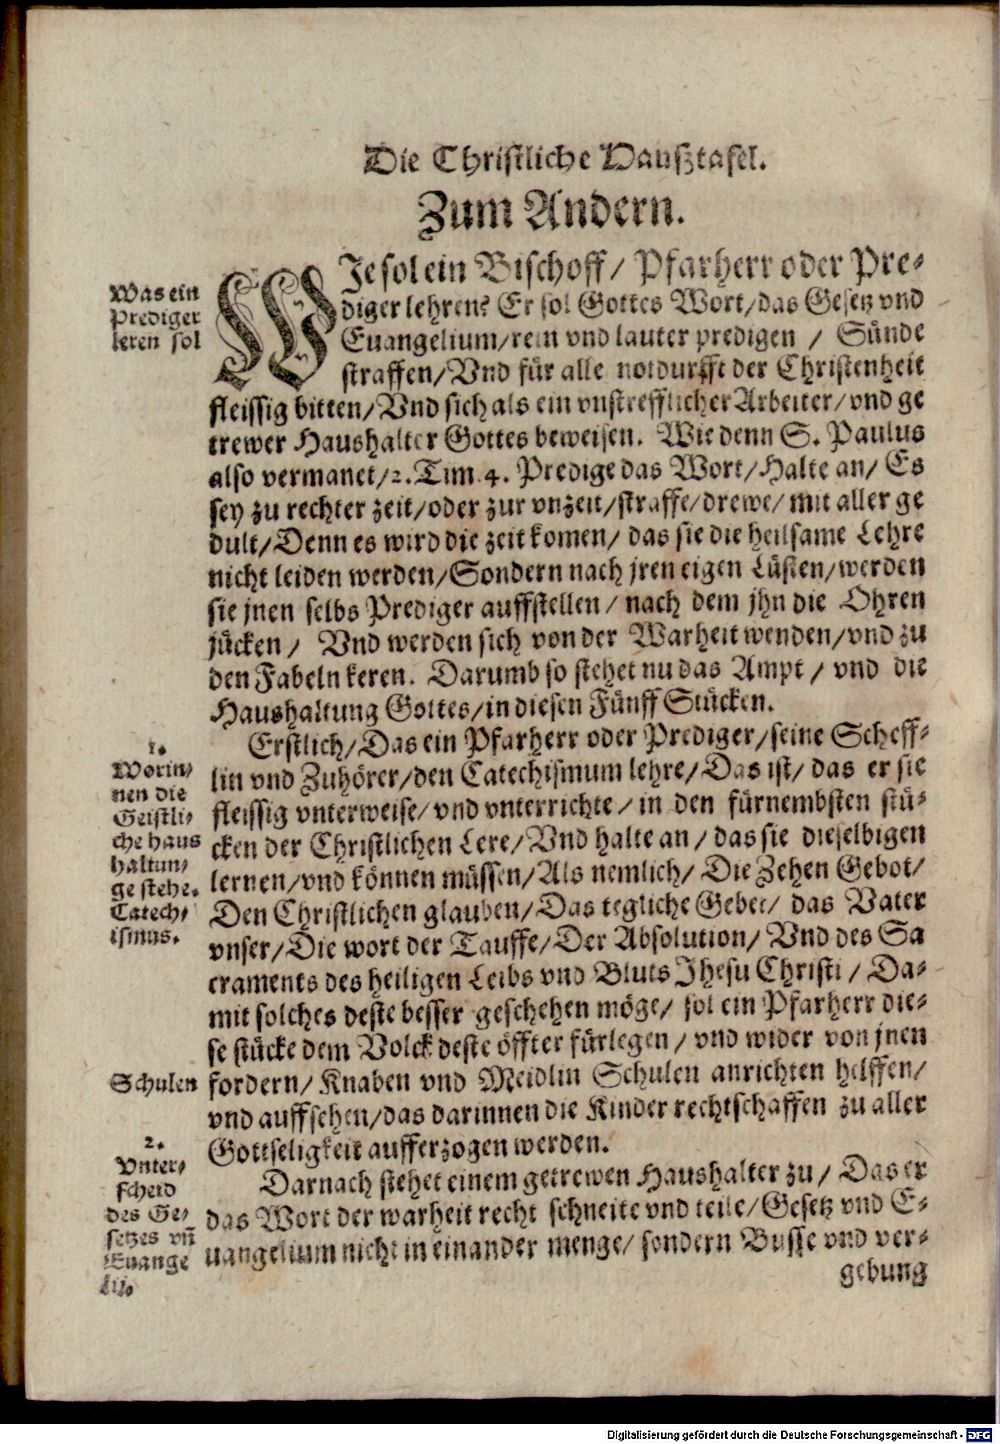 Die Christliche Haußtafel.
Zum Andern.
Was ein
Prediger
leren sol
WJe sol ein Bischoff / Pfarherr oder Pre-
diger lehren? Er sol Gottes Wort / das Gesetz vnd
Euangelium / rein vnd lauter predigen / Sünde
straffen / Vnd für alle notdurfft der Christenheit
fleissig bitten / Vnd sich als ein vnstrefflicher Arbeiter / vnd ge
trewer Haushalter Gottes beweisen. Wie denn S. Paulus
also vermanet / 2. Tim. 4. Predige das Wort / Halte an / Es
sey zu rechter zeit / oder zur vnzeit / straffe / drewe / mit aller ge
dult / Denn es wird die zeit komen / das sie die heilsame Lehre
nicht leiden werden / Sondern nach jren eigen Lüsten / werden
sie jnen selbs Prediger auffstellen / nach dem jhn die Ohren
jücken / Vnd werden sich von der Warheit wenden / vnd zu
den Fabeln keren. Darumb so stehet nu das Ampt / vnd die
Haushaltung Gottes / in diesen Fünff Stücken.
1.
Worin-
nen die
Geistli-
che haus
haltun-
ge stehe.
Catech-
ismus.
Erstlich / Das ein Pfarherr oder Prediger / seine Scheff-
lin vnd Zuhörer / den Catechismum lehre / Das ist / das er sie
fleissig vnterweise / vnd vnterrichte / in den fürnembsten stü-
cken der Christlichen Lere / Vnd halte an / das sie dieselbigen
lernen / vnd können müssen / Als nemlich / Die Zehen Gebot /
Den Christlichen glauben / Das tegliche Gebet / das Vater
vnser / Die wort der Tauffe / Der Absolution / Vnd des Sa
craments des heiligen Leibs vnd Bluts Jhesu Christi / Da-
mit solches deste besser geschehen möge / sol ein Pfarherr die-
se stücke dem Volck deste öffter fürlegen / vnd wider von jnen
Schulen
fordern / Knaben vnd Meidlin Schulen anrichten helffen /
vnd auffsehen / das darinnen die Kinder rechtschaffen zu aller
Gottseligkeit aufferzogen werden.
2.
Vnter-
scheid
des Ge-
setzes vñ
Euange
lij.
Darnach stehet einem getrewen Haushalter zu / Das er
das Wort der warheit recht schneite vnd teile / Gesetz vnd E-
uangelium nicht in einander menge / sondern Busse vnd ver-
gebung
Digitalisierung gefördert durch die Deutsche Forschungsgemeinschaft - DFG